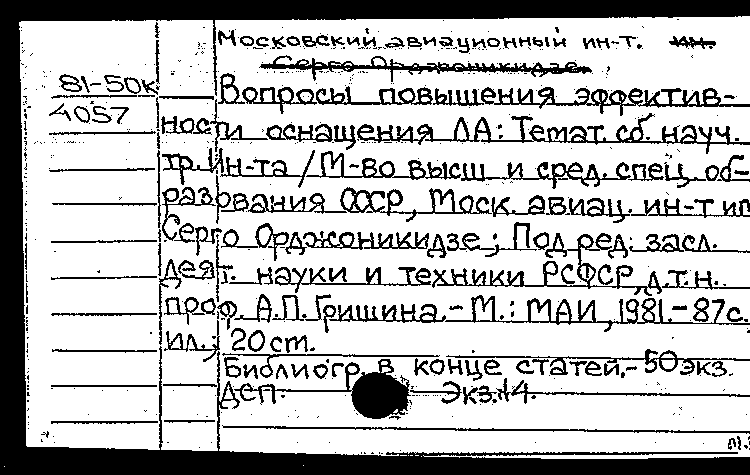 Московский авиационный ин-т. им.
Серго Орджоникидзе.
81-50к
4057
Вопросы повышения эффектив-
ности оснащения ЛА: Темат. сб. науч.
тр. Ин-та / М-во высш и сред. спец. об-
разования СССР, Моск. авиац. ин-т им
Серго Орджоникидзе; Под ред. засл.
деят. науки и техники РСФСР, д.т.н.
проф. А.П. Гришина. - М.: МАИ, 1981. - 87с.
ил.; 20 cm.
Библиогр. в конце статей. - 50 экз.
ДСП. Экз.14.